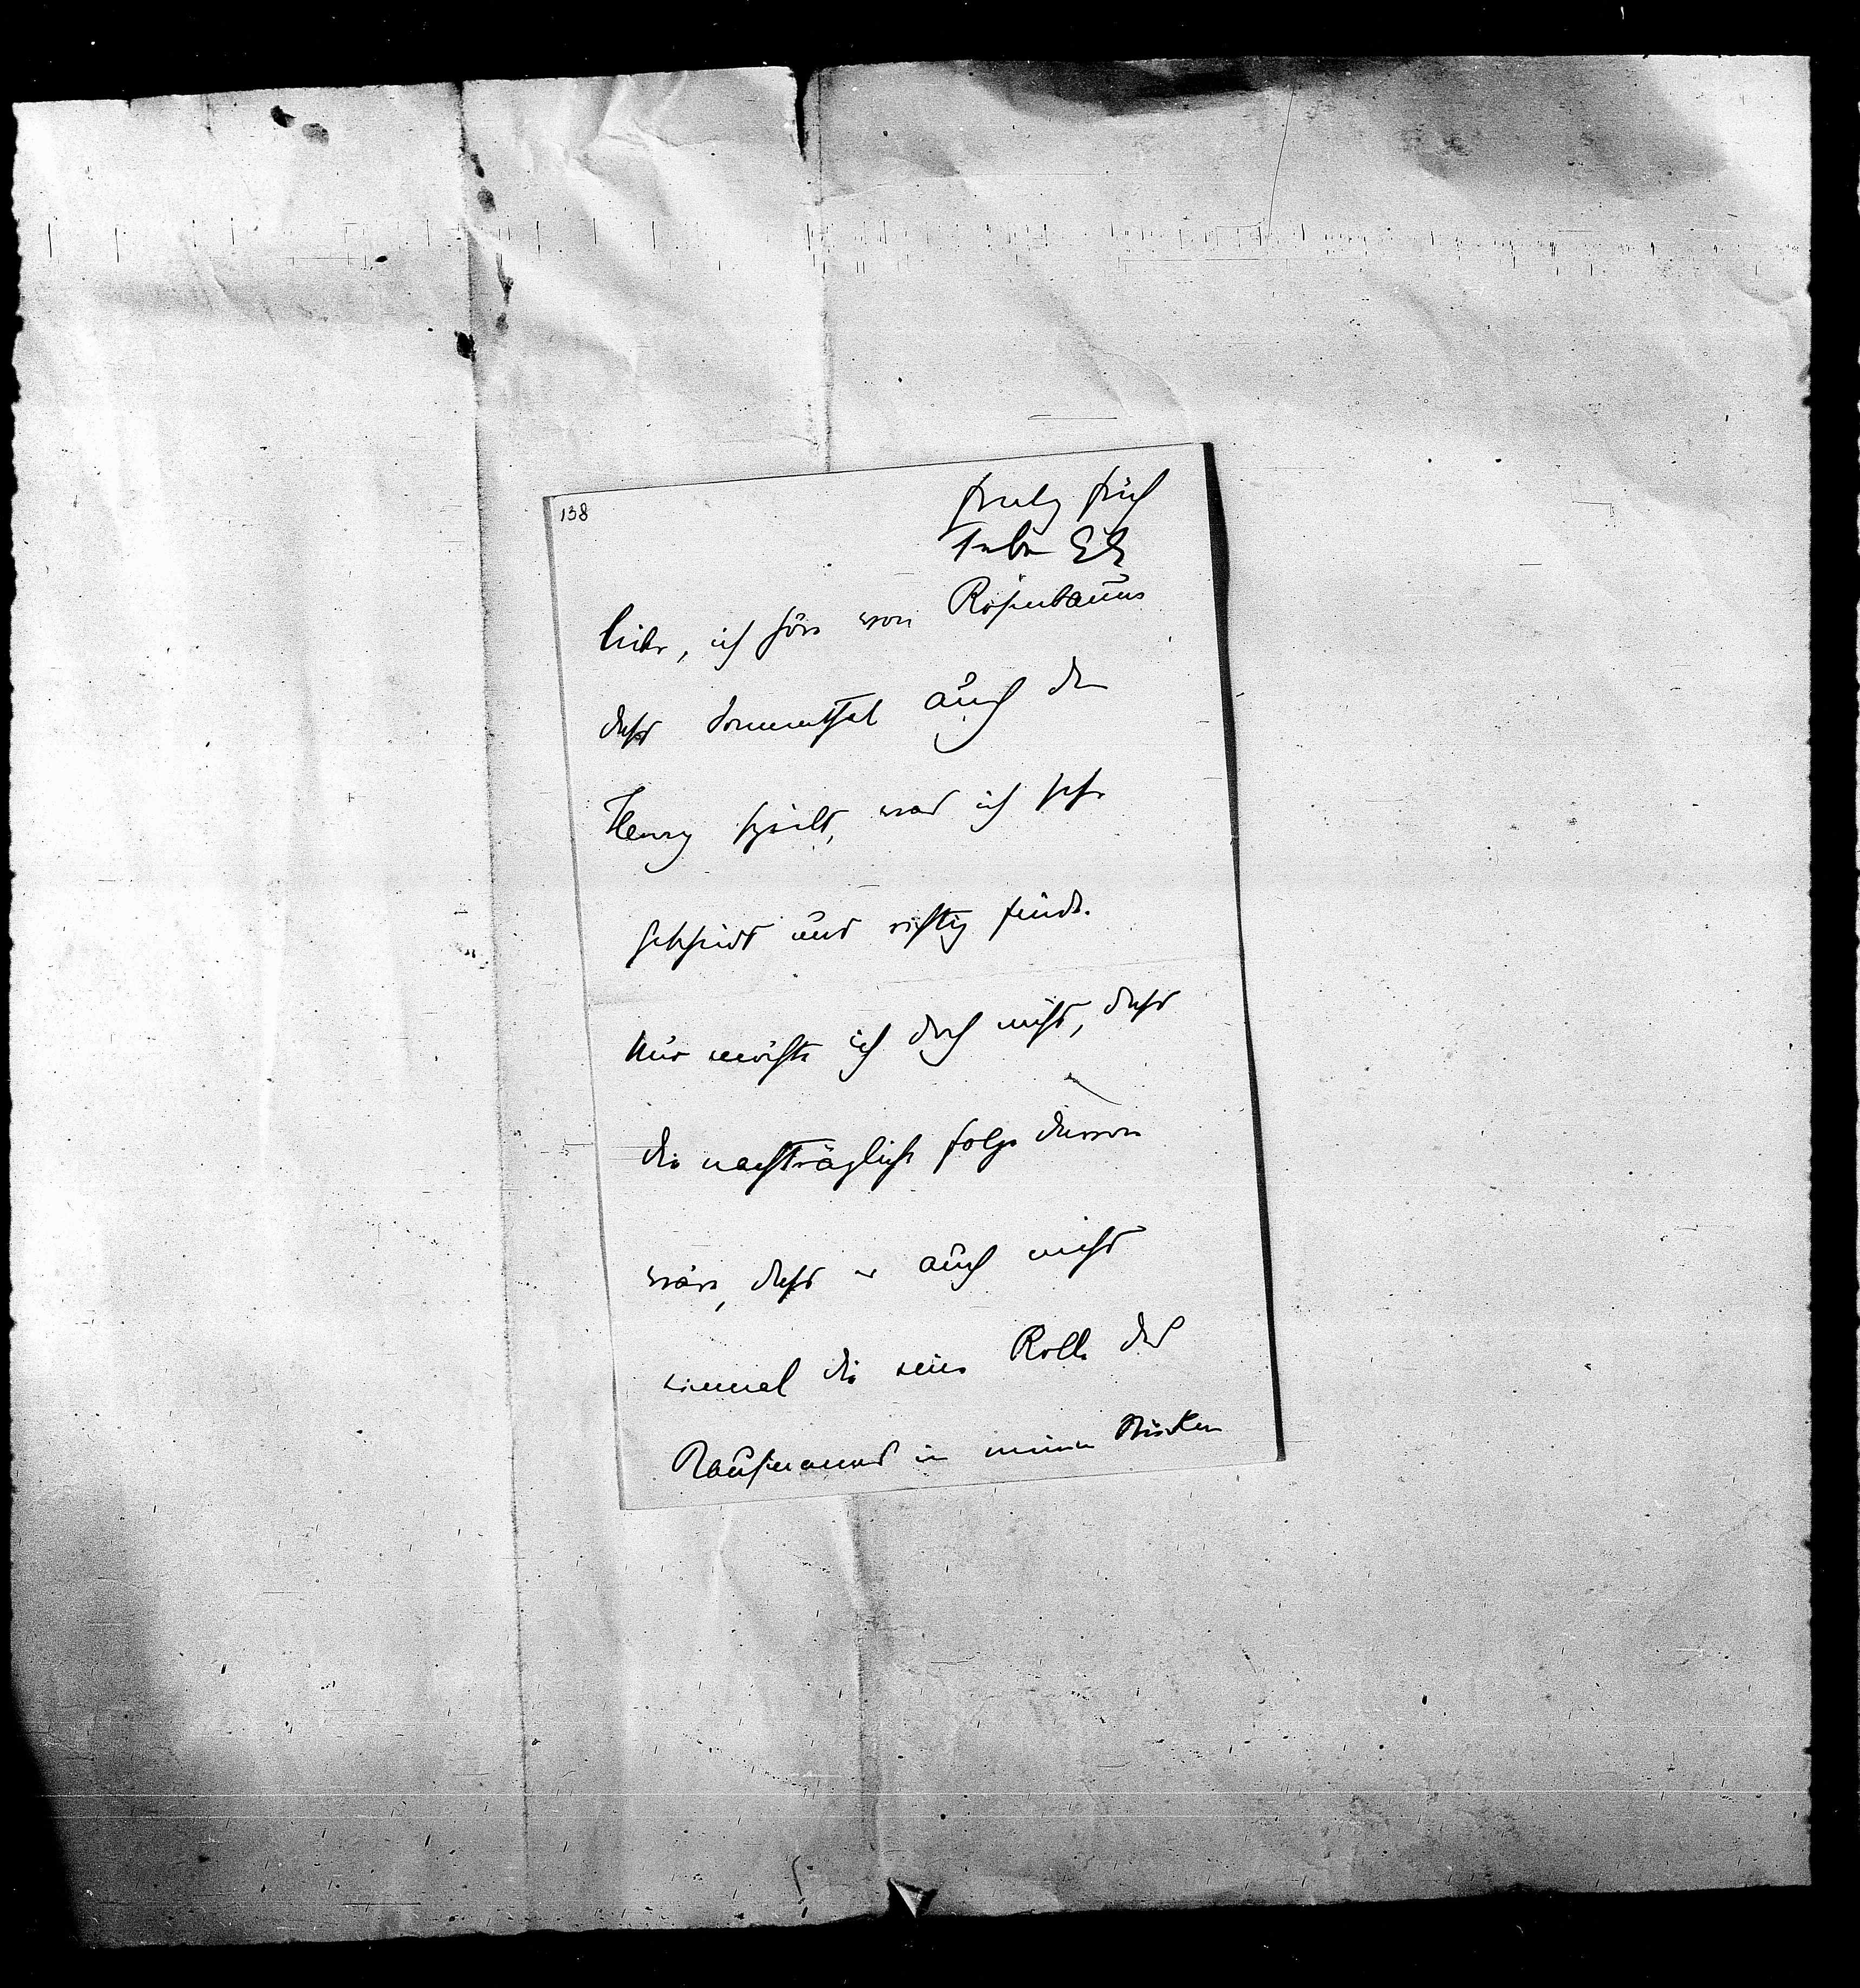 138
früh
lieber, ich höre von Rosenbaum
dass Sonnenthal auch den
Henry spielt, was ich sehr
gescheidt und richtig finde.
Nur möchte ich doch nicht, dass
die nachträgliche Folge davon
wäre, dass er auch nicht
einmal die eine Rolle des
Kaufmanns in meinen Stücken